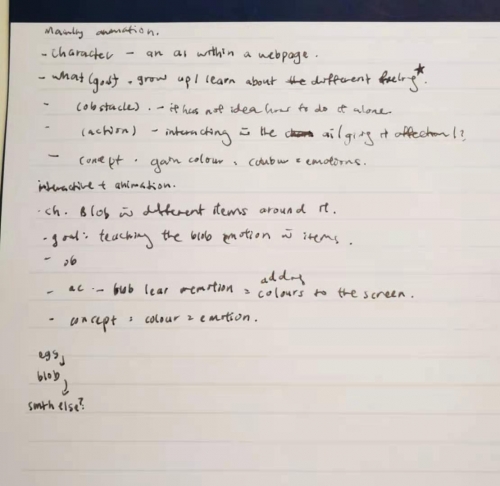 mainly animation.
- character - an ai within a webpage.
- what (goal) . grow up / learn about the different feeling*.
- (obstacle) . - it has not idea how to do it alone.
- (action) - interacting w the ai (giving it affection)!?
- concept . gain colour , colour = emotions.
interactive + animation.
. ch. Blob w different items around it.
- goal: teaching the blob emotion w items.
- ob
- ac - blob lear emotion = adding colours to the screen.
- concept = colour = emotion.
egg
blob
smth else?